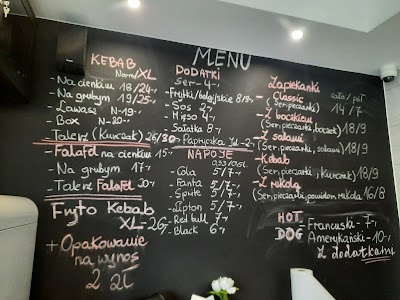 MENU
KEBAB
Normal/XL
- Na cienkim 18/24,-
- Na grubym 19/25,-
- Lawasz N-19-
- Box N-20-
- Talerz (Kurczak) 26/30
- Falafel na cienkim 15,-
- Na grubym 17,-
- Talerz Falafel 20,-
Fryto Kebab
XL-26,-
+ Opakowanie
na wynos
2 zł
DODATKI
Ser-4,-
- Frytki/belgijskie 8/9,-
- Sos 2,-
- Mięso 4,-
- Sałatka 8,-
- Papryczka 1szt-2,-
NAPOJE
0,33/0,5L
- Cola 5/7,-
- Fanta 5/7,-
- Sprite 5/7,-
- Lipton 5/7,-
- Red bull 7,-
- Black 6,-
Zapiekanki
cała / pół
- Classic
(Ser, pieczarki) 14/7,-
- Z boczkiem
(Ser, pieczarki, boczek) 18/9
- Z salami
(Ser, pieczarki, salami) 18/9
- Kebab
(Ser, pieczarki, Kurczak) 18/9
- Z rukolą
(Ser, pieczarki, pomidor, rukola) 16/8
HOT DOG
Francuski- 7,-
Amerykański-10,-
Z dodatkami